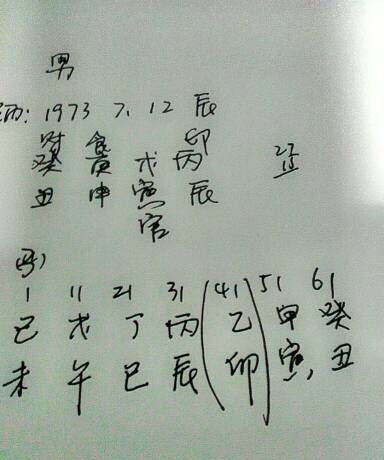 男
历: 1973 7. 12 辰
财 食 印
癸 庚 戊 丙
丑 申 寅 辰
官
1 11 21 31 (41) 51 61
己 戊 丁 丙 乙 甲 癸
未 午 巳 辰 卯 寅, 丑